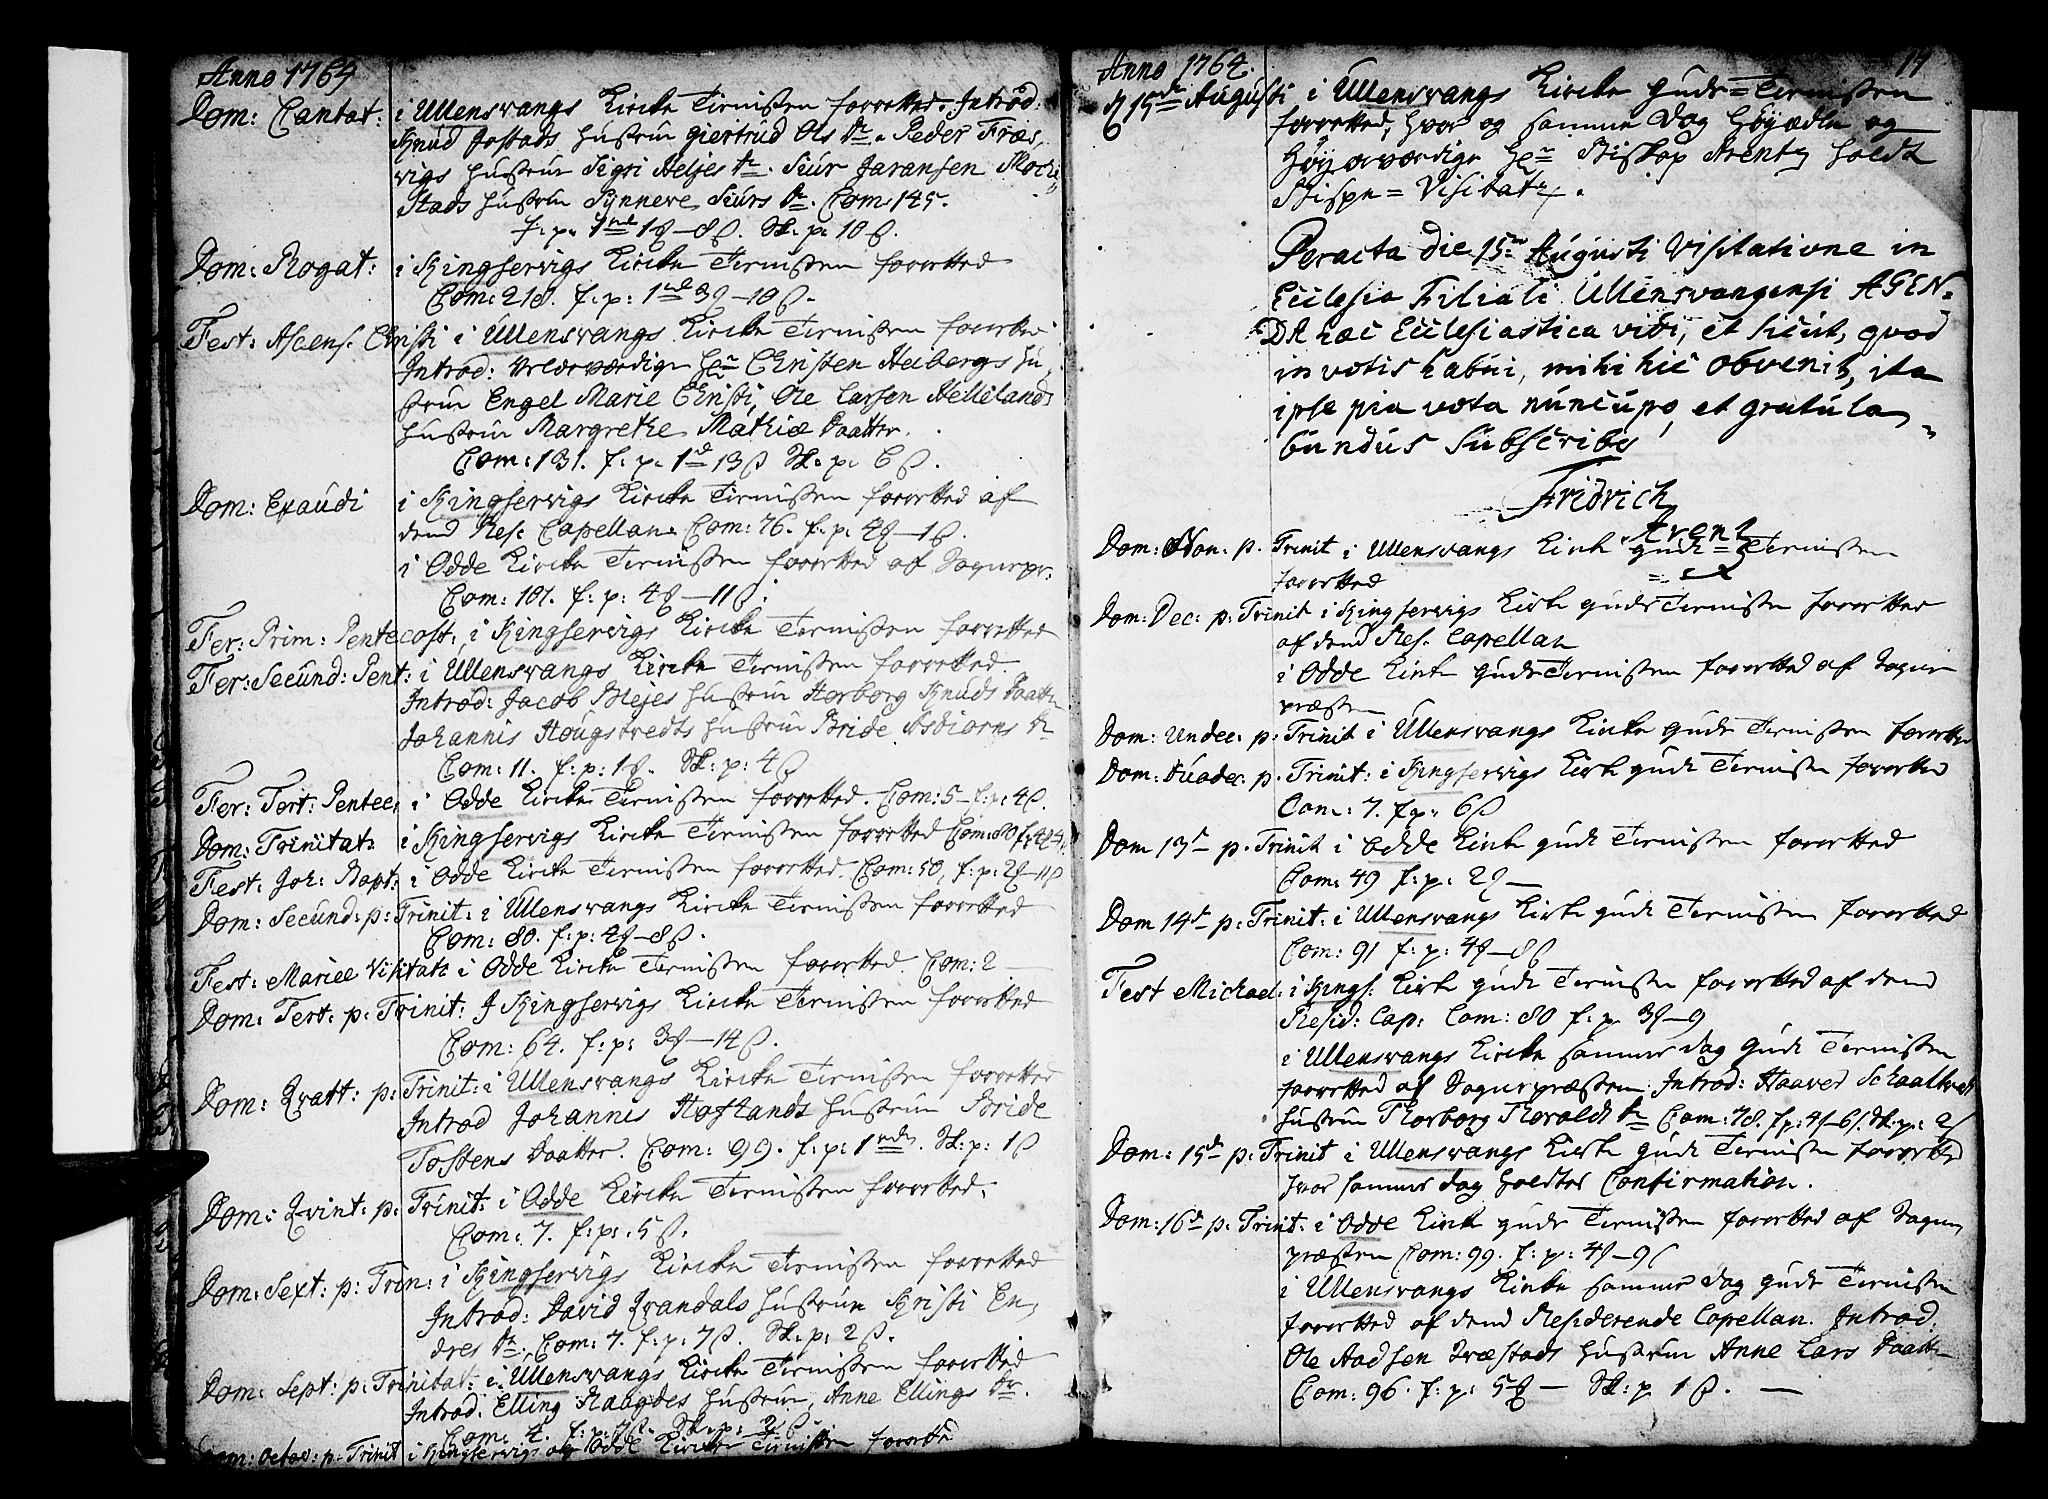 Anno 1764
Dom: Cantat: i Ullensvangs Kircke Tienisten forretted. Introd:
Knud Jostads Hustrue Giertrud Ols dr. Peder Fræs,
vigs Hustrue Sigri Heljes dr. Siur Jaransen Moche
Stads Hustrue Synneve Siurs dr. Com: 145.
f: p: 1 rd 1 ₰ – 8 ß. Sk: p: 10 ß.
Dom: Rogat: i Kingservigs Kircke Tienisten forretted
Com: 218. f: p: 1 rd 3 ₰ – 10 ß.
Fest: Ascens. Christi i Ullensvangs Kircke Tienisten forretted
Introd: Velærværdige Hr Christen Heibergs Hu,
strue Engel Marie Christi, Ole Larsen Helleland
Hustrue Margrethe Mathiæ Daatter.
Com: 131. f: p. 1 rd 13 ß Sk: p: 6 ß.
Dom: Exaudi i Kingservigs Kircke Tienisten forretted af
dend Res: Capellan. Com: 76. f: p: 4 ₰ – 1 ß.
i Odde Kircke Tienisten forretted af Sognepr:
Com: 101. f: p: 4 ₰ – 11 ß.
Fer: Prim: Pentecost: i Kingservigs Kircke Tienisten forretted
Fer: Secund: Pent: i Ullensvangs Kircke Tienisten forretted.
Introd: Jacob Blejes Hustrue Herborg Knuds Daatt
Johannis Hougstvedts Hustrue Bride Asbiorns dr
Com: 11. f: p: 1 ₰. Sk: p: 4 ß
Fer: Tert: Pentec, i Odde Kircke Tienisten forretted. Com: 5 – f: p: 4 ß.
Dom: Trinitat: i Kingservigs Kircke Tienisten forretted Com: 80 f: 4 ₰ 4
Fest: Joh: Bapt: i Odde Kircke Tienisten forretted. Com: 50, f: p: 2 ₰ – 11 ß
Dom: Secund: p: Trinit: i Ullensvangs Kircke Tienisten forretted
Com: 80. f: p: 4 ₰ – 8 ß.
Fest: Mariee Visitat: i Odde Kircke Tienisten forretted. Com: 2 —
Dom: Tert: p: Trinit: J Kingservigs Kircke Tienisten forretted
Com: 64. f: p: 3 ₰ – 14 ß.
Dom: Qvatt: p: Trinit: i Ullensvangs Kircke Tienisten forretted
Introd Johannis Hoflands Hustrue Bride
Tostens Daatter. Com: 99. f: p: 1 rdr. Sk: p: 1 ß
Dom: Qvint: p: Trinit: i Odde Kircke Tienisten forretted.
Com: 7. f: p: 5 ß.
Dom: Sext: p: Trin: i Kingservigs Kircke Tienisten forretted
Introd: David Qvandals Hustrue Kristi En,
dres dr. Com: 7. f: p: 7 ß. Sk: p: 2 ß.
Dom: Sept: p: Trinitat: i Ullensvangs Kircke Tienisten forretted
Introd: Elling Haugdes Hustrue, Anne Ellings dr.
Com: 4. f: p: 7 ß. Sk: p: 2 ß.
Dom: Octav: p: Trinit i Kingservigs og Odde Kircker Tienisten forrette
Anno 1764. 14
d 15de Augusti i Ullensvangs Kircke Guds=Tienisten
forretted, hvor og samme Dag Høyædle og
Høyærværdige Hr Biskop Arentz holdt
Bispe=Visitatz.
Peracta die 15ta Augusti Visitatione in
Ecclesia Filiali Ullensvangensi AGEN=
DA hæc Ecclesiastica vidi, et sicut, qvod
in votis habui, mihi hic obvenit, ita
ipse pia vota nuncupo, et gratula=
bundus subscribo
Fridrich
Arentz
Dom: Non. p. Trinit i Ullensvangs Kirke Guds=Tienisten
forretted
Dom: Dec: p: Trinit i Kingservigs Kirke Guds Tienisten forretted
af dend Res. Capellan
i Odde Kirke Guds Tienisten forretted af Sogne
præsten
Dom: Undec: p: Trinit i Ullensvangs Kircke Guds Tienisten forretted
Dom: Duodec: p. Trinit: i Kingservigs Kirke Guds Tienisten forretted
Com: 7. f p: 6 ß
Dom 13d p. Trinit i Odde Kirke Guds Tienisten forretted
Com: 49 f: p: 2 ₰ —
Dom 14d p: Trinit: i Ullensvangs Kirke Guds Tienisten forretted
Com: 91 f: p: 4 ₰ – 8 ß
Fest Michael: i Kings: Kirke Guds Tienisten forretted af dend
Resid: Cap: Com: 80 f: p. 3 ₰ – 9
i Ullensvangs Kircke samme dag Guds Tienisten
forretted af Sognepræsten. Introd: Haaver Schaaltved
Hustrue Thorborg Thorolds dr Com: 78. f p: 4 ₰ – 6 ß. Sk: p: 2 ß
Dom: 15d p: Trinit i Ullensvangs Kirke Guds Tienisten forretted
hvor samme dag holdtes Confirmation.
Dom: 16d p: Trinit: i Odde Kirke Guds Tienisten forretted af Sogne,
præsten Com: 99. f: p: 4 ₰ – 9 ß
i Ullensvangs Kirke samme dag Guds Tienisten
forretted af dend Residerende Capellan. Introd.
Ole Aadsen Træstads Hustrue Anne Lars Daatt
Com: 96. f: p: 5 ₰ — Sk: p 1 ß. —